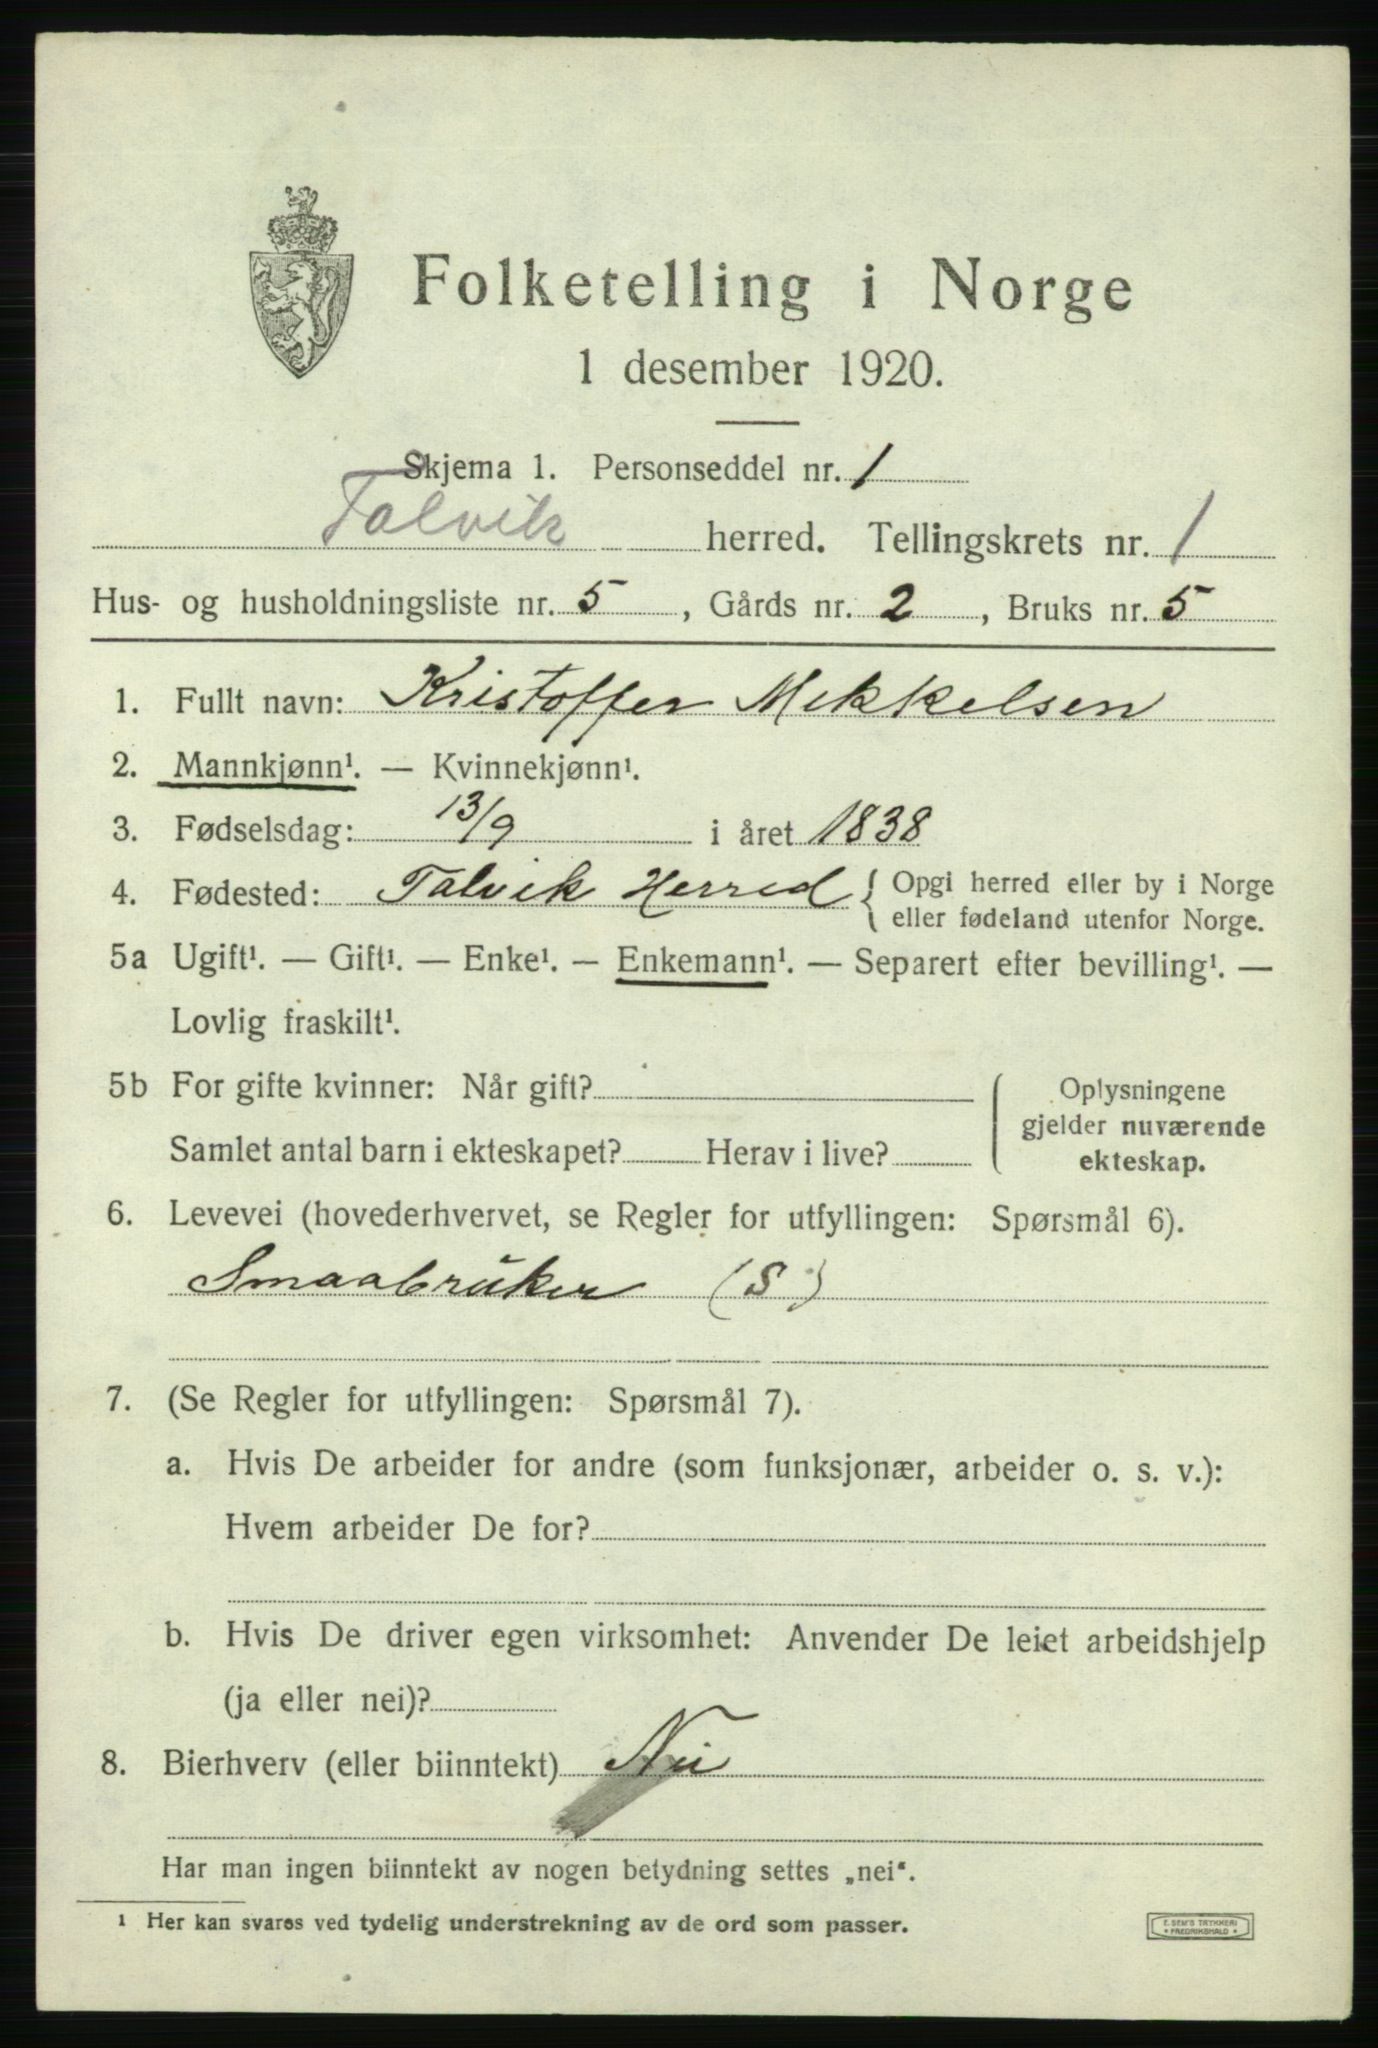 Folketelling i Norge
1 desember 1920.
Skjema 1. Personseddel nr. 1
Talvik herred. Tellingskrets nr. 1
Hus- og husholdningsliste nr. 5, Gårds nr. 2, Bruks nr. 5
1. Fullt navn: Kristoffer Mikkelsen
2. Mannkjønn¹. — Kvinnekjønn¹.
3. Fødselsdag: 13/9 i året 1838
4. Fødested: Talvik Herred { Opgi herred eller by i Norge
eller fødeland utenfor Norge.
5a Ugift¹. — Gift¹. — Enke¹. — Enkemann¹. — Separert efter bevilling¹. —
Lovlig fraskilt¹.
5b For gifte kvinner: Når gift?
Samlet antal barn i ekteskapet? Herav i live?
Oplysningene
gjelder nuværende
ekteskap.
6. Levevei (hovederhvervet, se Regler for utfyllingen: Spørsmål 6).
Smaabruker (S)
7. (Se Regler for utfyllingen: Spørsmål 7).
a. Hvis De arbeider for andre (som funksjonær, arbeider o. s. v.):
Hvem arbeider De for?
b. Hvis De driver egen virksomhet: Anvender De leiet arbeidshjelp
(ja eller nei)?
8. Bierhverv (eller biinntekt) Nei
Har man ingen biinntekt av nogen betydning settes „nei“.
¹ Her kan svares ved tydelig understrekning av de ord som passer.
E. SEM'S TRYKKERI
* FREDRIKSHALD *